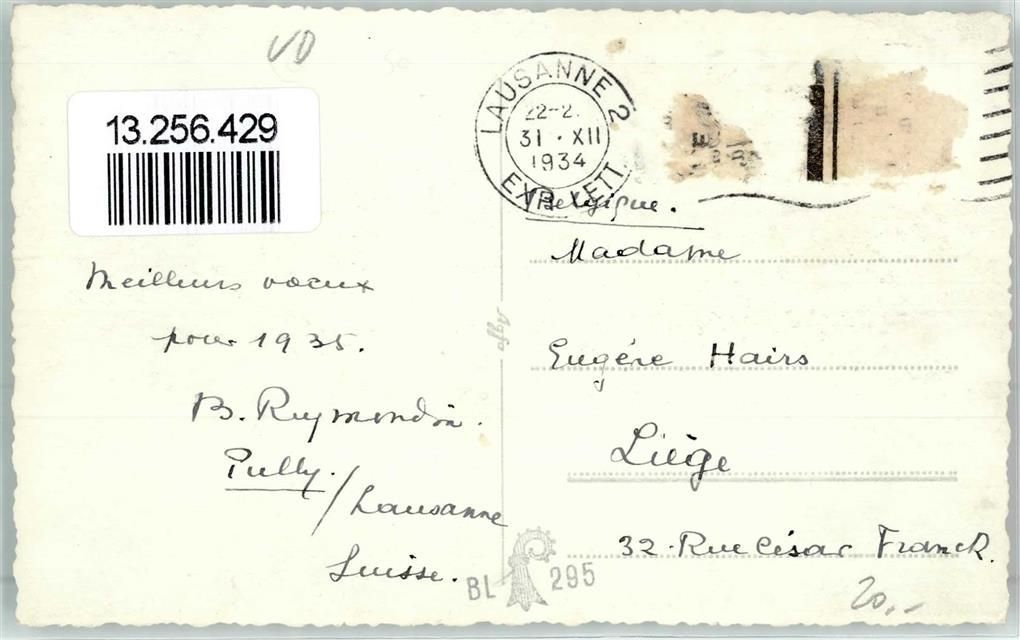 VD
13.256.429
LAUSANNE 2
22-2
31 · XII
1934
EXP. LETT.
Meilleurs voeux
pour 1935.
Pully. / Lausanne
Suisse.
Agfa
BL 295
Belgique.
Madame
Eugène Hairs
Liège
32 · Rue César Franck.
20,-